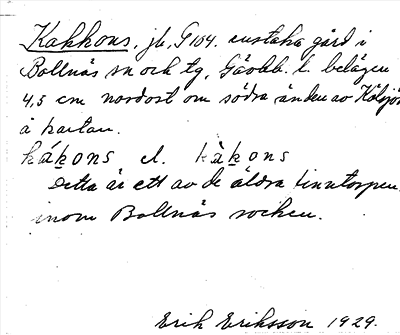 Kakkons, jb, G 104. enstaka gård i
Bollnäs sn och tg, Gävlb. l. belägen
4,5 cm nordost om södra änden av Kölsjön
å kartan.
kákons el. kàkons
Detta är ett av de äldre finntorpen
inom Bollnäs socken.
Erik Eriksson 1929.